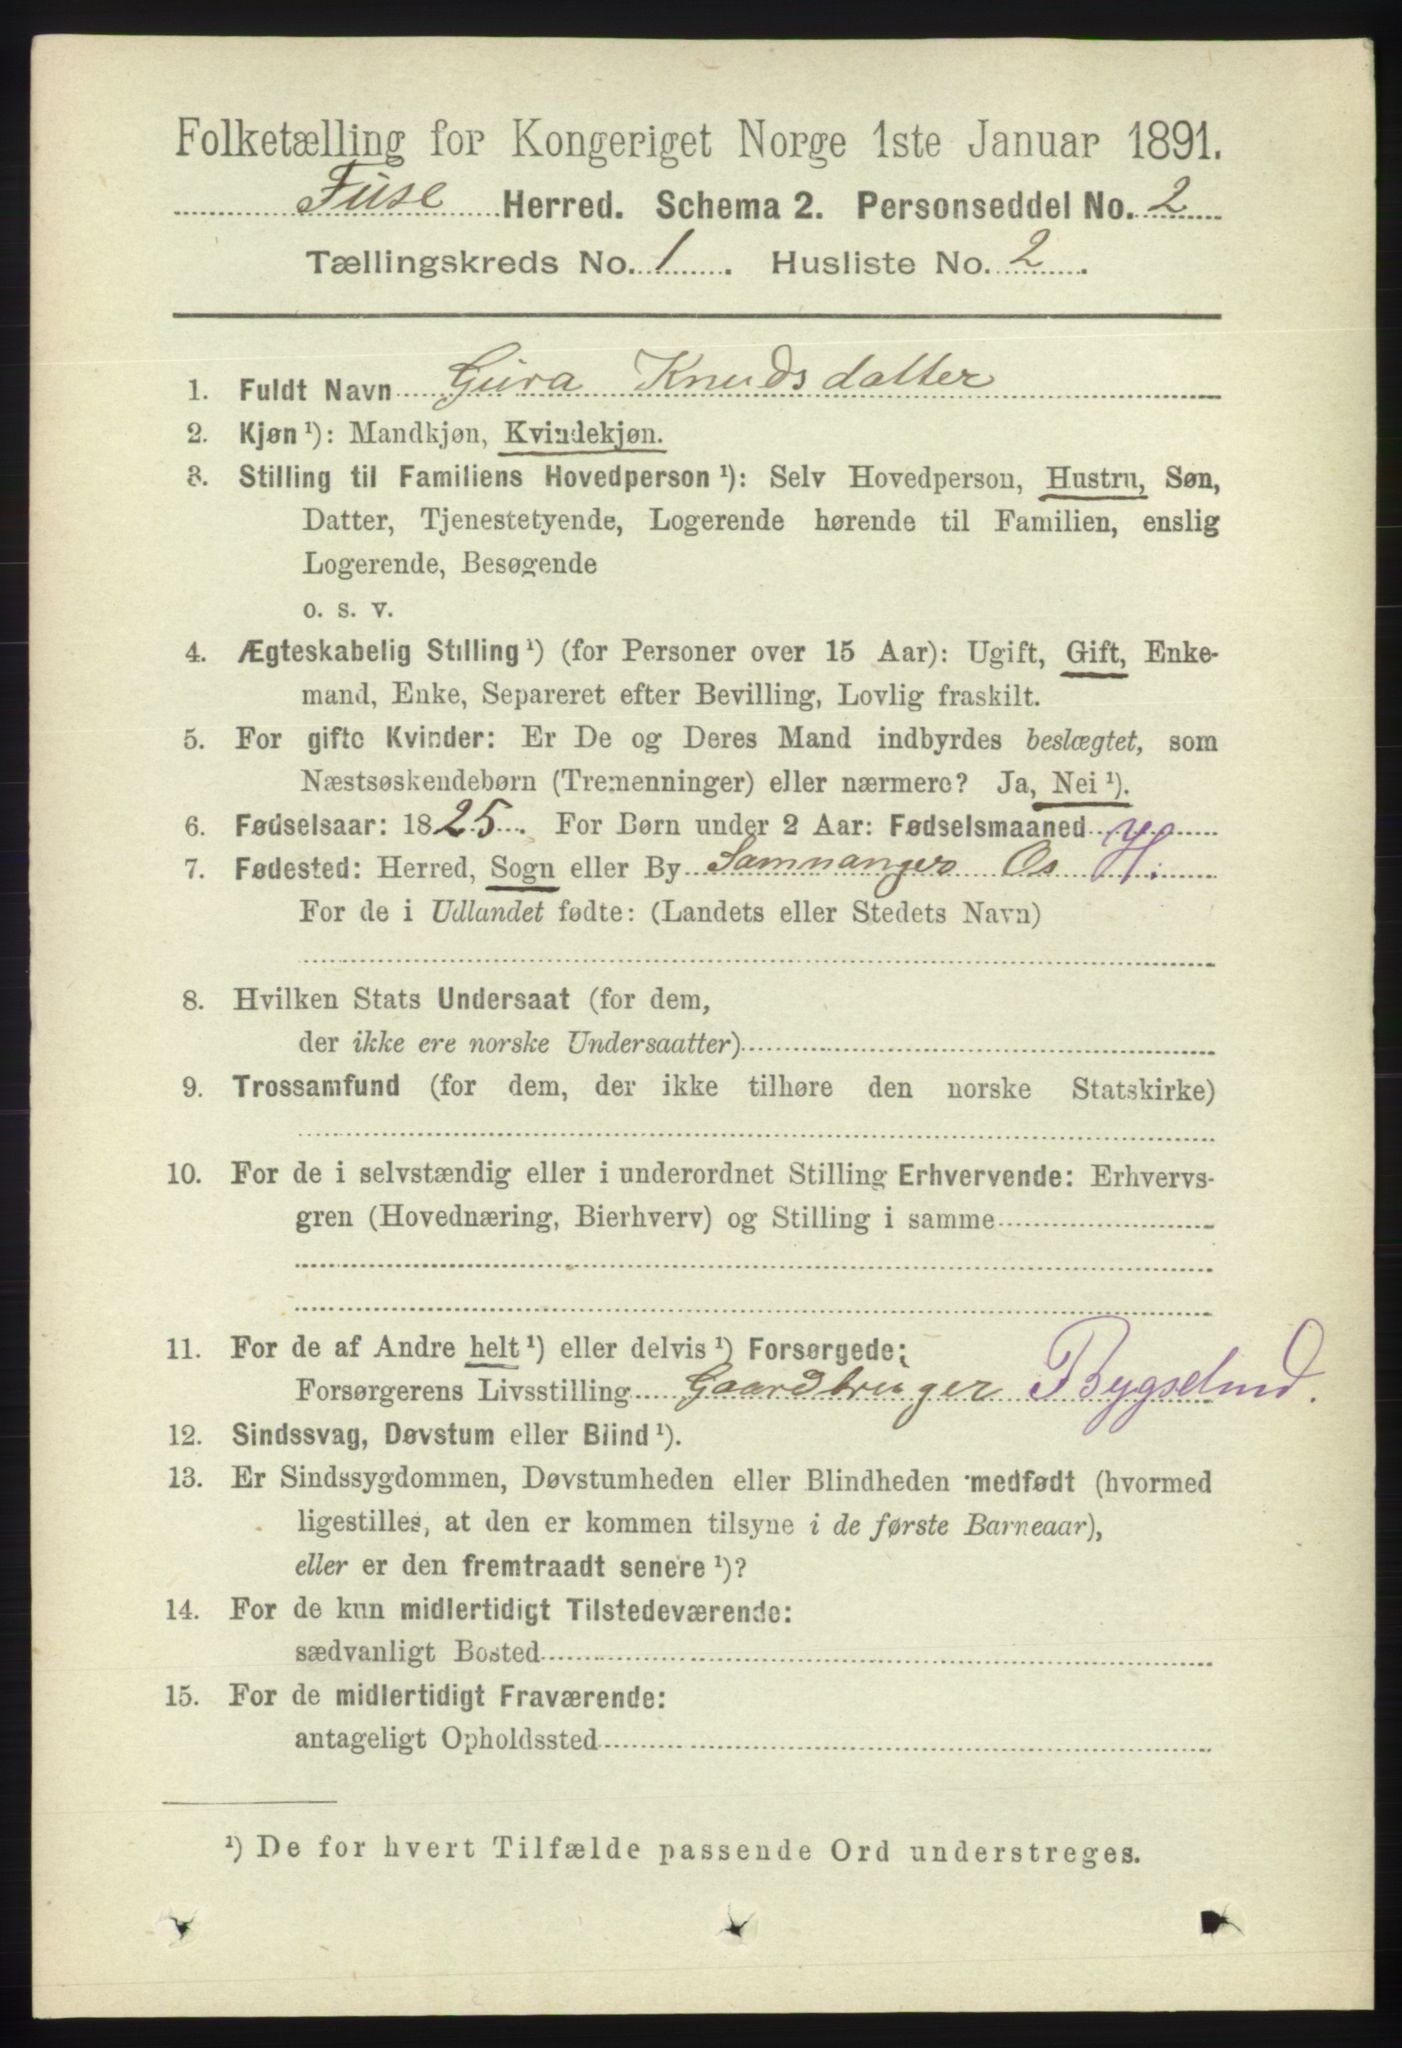 Folketælling for Kongeriget Norge 1ste Januar 1891.
Fuse Herred. Schema 2. Personseddel No. 2
Tællingskreds No. 1. Husliste No. 2.
1. Fuldt Navn Gura Knudsdatter
2. Kjøn ¹): Mandkjøn, Kvindekjøn.
3. Stilling til Familiens Hovedperson ¹): Selv Hovedperson, Hustru, Søn,
Datter, Tjenestetyende, Logerende hørende til Familien, enslig
Logerende, Besøgende
o. s. v.
4. Ægteskabelig Stilling ¹) (for Personer over 15 Aar): Ugift, Gift, Enke-
mand, Enke, Separeret efter Bevilling, Lovlig fraskilt.
5. For gifte Kvinder: Er De og Deres Mand indbyrdes beslægtet, som
Næstsøskendebørn (Tremenninger) eller nærmere? Ja, Nei ¹).
6. Fødselsaar: 1825. For Børn under 2 Aar: Fødselsmaaned
7. Fødested: Herred, Sogn eller By Samnanger Os H.
For de i Udlandet fødte: (Landets eller Stedets Navn)
8. Hvilken Stats Undersaat (for dem,
der ikke ere norske Undersaatter)
9. Trossamfund (for dem, der ikke tilhøre den norske Statskirke)
10. For de i selvstændig eller i underordnet Stilling Erhvervende: Erhvervs-
gren (Hovednæring, Bierhverv) og Stilling i samme
11. For de af Andre helt ¹) eller delvis ¹) Forsørgede:
Forsørgerens Livsstilling Gaardbruger Bygselmd.
12. Sindssvag, Døvstum eller Blind ¹).
13. Er Sindssygdommen, Døvstumheden eller Blindheden medfødt (hvormed
ligestilles, at den er kommen tilsyne i de første Barneaar),
eller er den fremtraadt senere ¹)?
14. For de kun midlertidigt Tilstedeværende:
sædvanligt Bosted
15. For de midlertidigt Fraværende:
antageligt Opholdssted
¹) De for hvert Tilfælde passende Ord understreges.